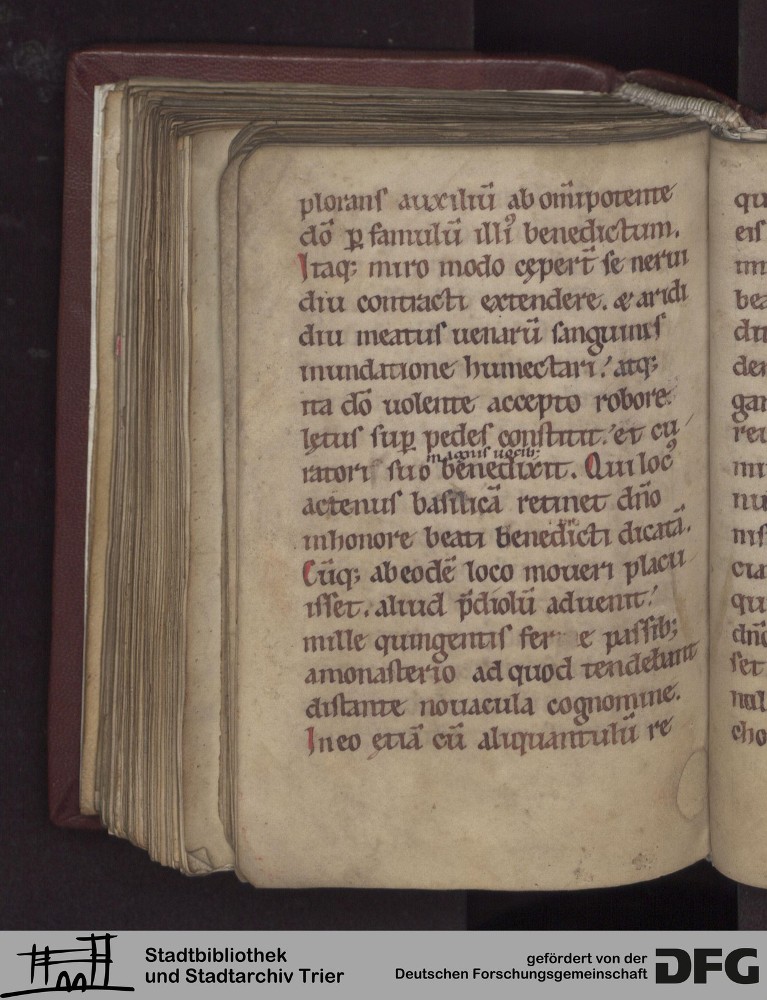 plorans auxiliū ab om̄ipotente
dō ꝑ famulū illiꝰ benedictum.
Itaq; miro modo cęper̄t se nerui
diu contracti extendere. & aridi
diu meatus uenarū sanguinis
inundatione humectari. atq;
ita dō uolente accepto robore.
lętus suꝑ pedes constitit. et cu
magnis uocib;
ratori suo benedixit. Qui locꝰ
actenus basilicā retinet dn̄o
inhonore beati benedicti dicatā.
Cūq; ab eodē loco moueri placu
isset. aliud p̄diolū aduenit.
mille quingentis fer e passib;
amonasterio ad quod tendebant
distante nouacula cognomine.
In eo etiā cū aliquantulū re
qu
eis
im
bea
du
der
gar
rei
mi
nu
nis
cia
qu
dn̄o
set
nul
cho
Stadtbibliothek
und Stadtarchiv Trier
gefördert von der
Deutschen Forschungsgemeinschaft
DFG